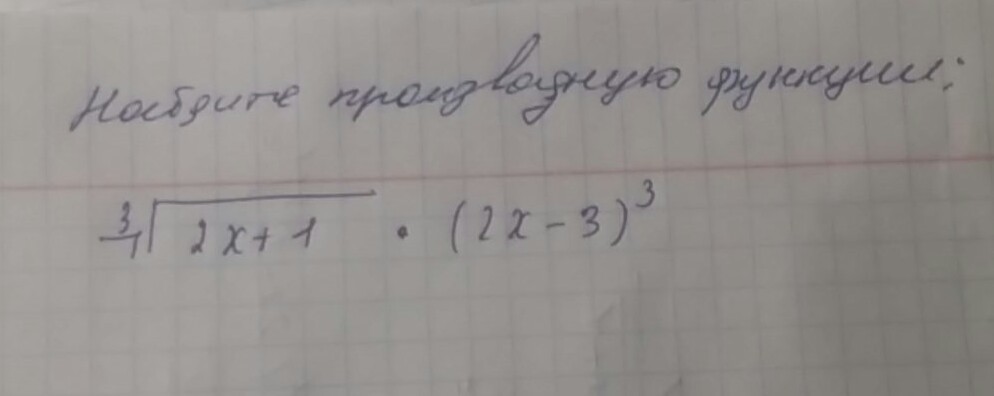 Найдите производную функции:
∛(2x+1) · (2x-3)³